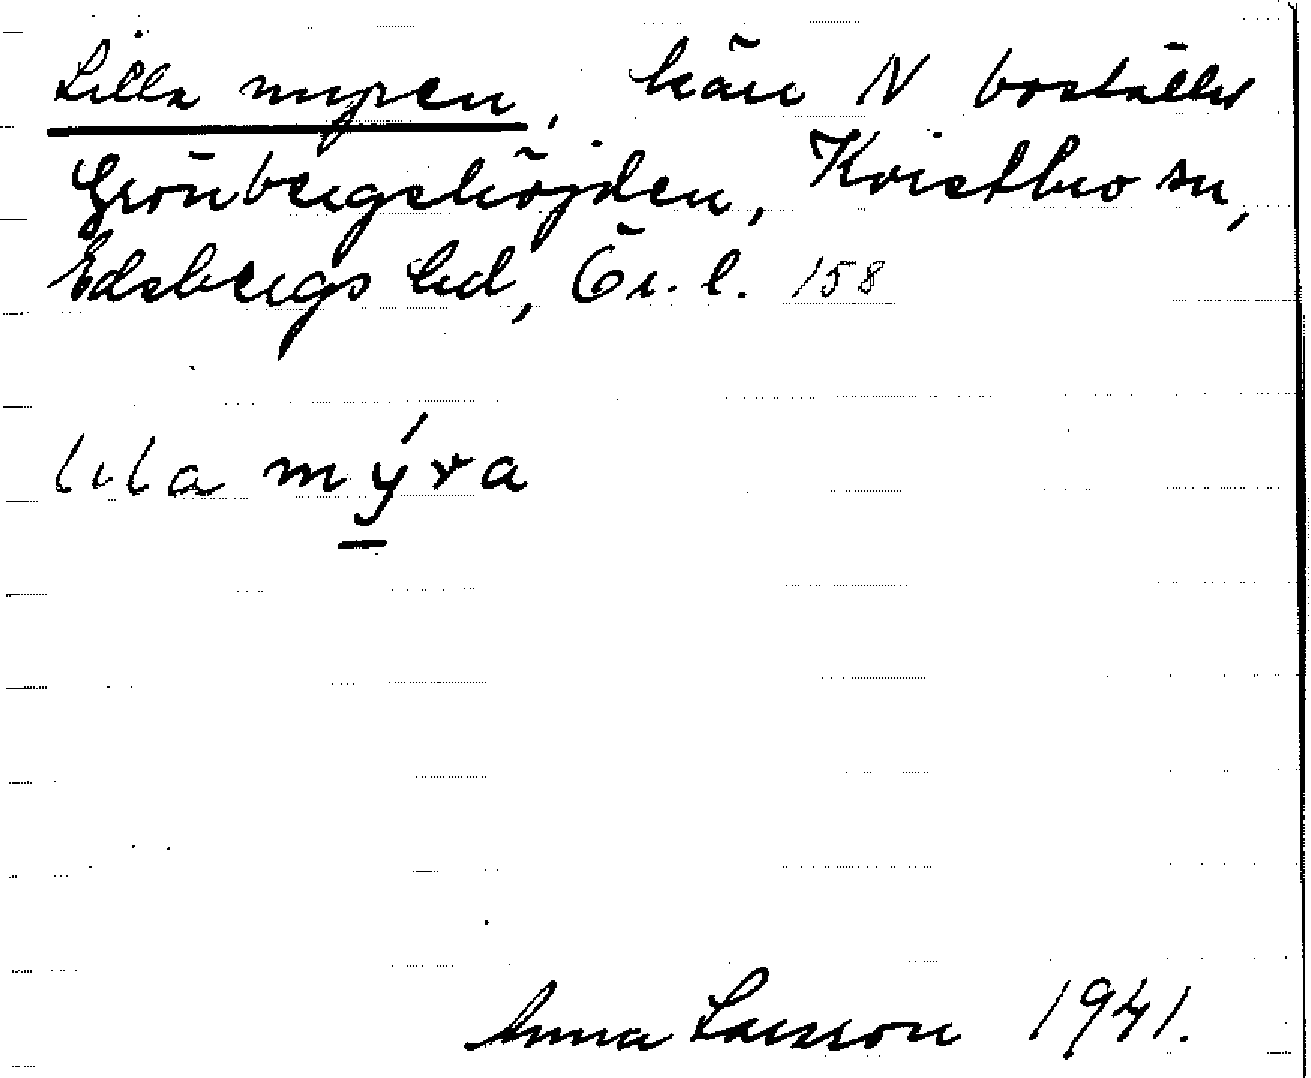 Lilla myren, kärr N bostället
Grönbergshöjden, Kvistbro sn,
Edsbergs hd, Ör. l. 158
lıla mýra
Anna Larsson 1941.